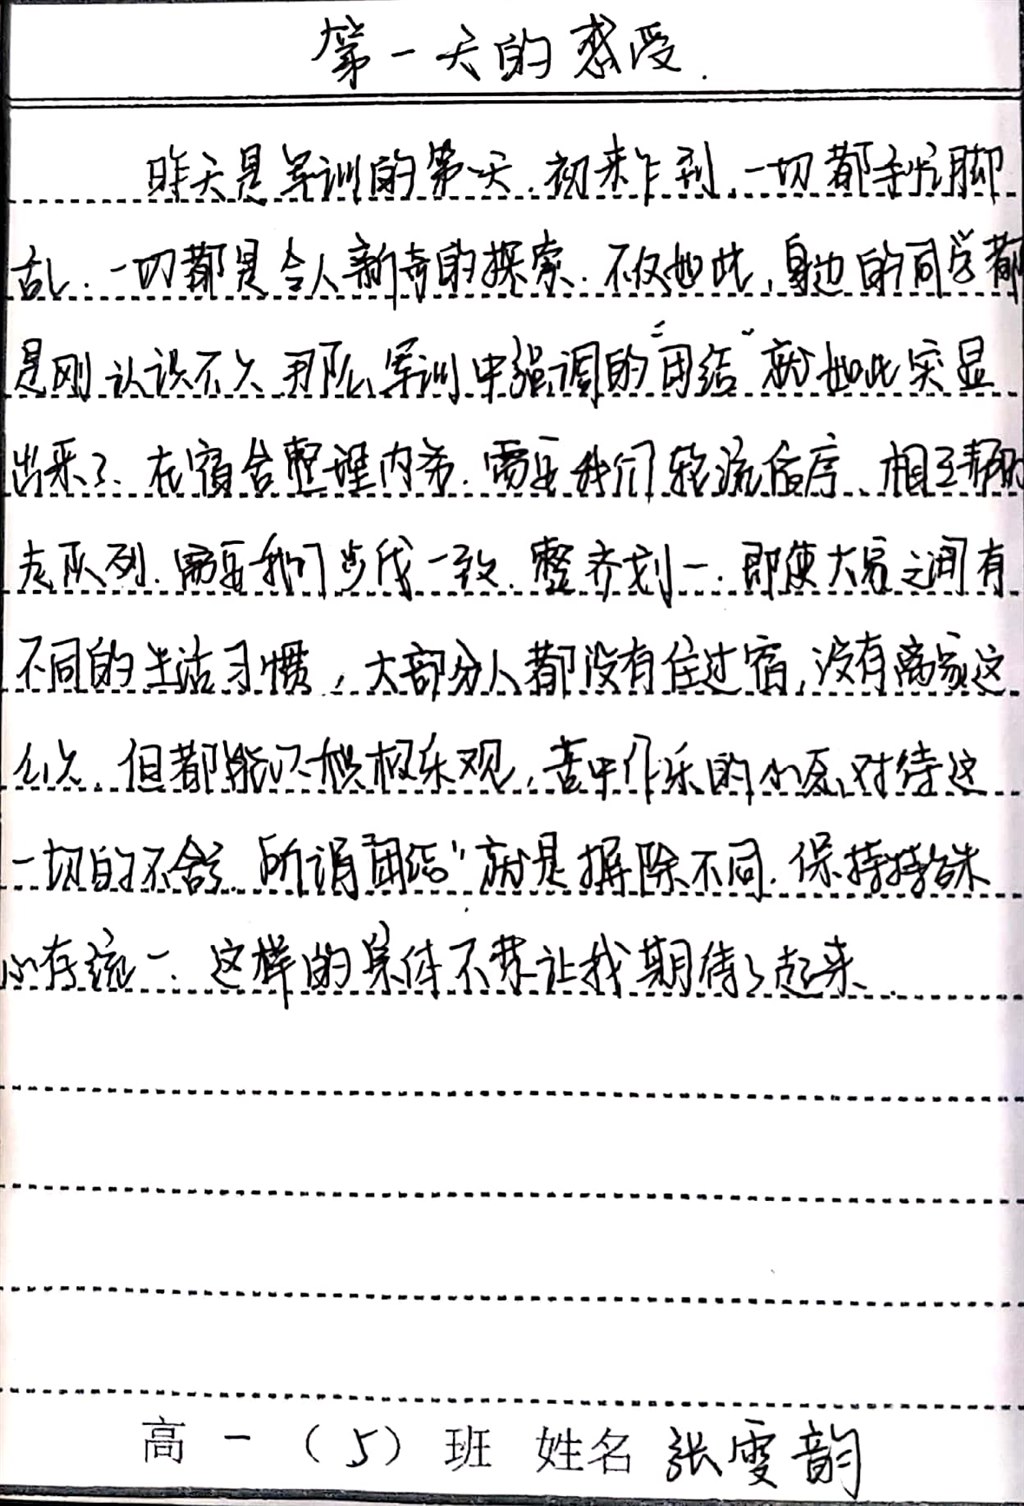 第一天的感受.
昨天是军训的第一天.初来乍到.一切都手忙脚
乱.一切都是令人新奇的探索.不仅如此,身边的同学都
是刚认识不久.那么军训中强调的"团结"就如此突显
出来了.在宿舍整理内务.需要我们轮流有序、相互帮助
走队列.需要我们步伐一致.整齐划一.即使大家之间有
不同的生活习惯,大部分人都没有住过宿,没有离家这
么久.但都能以积极乐观,苦中作乐的心态对待这
一切的不舍.所谓"团结"就是摒除不同.保持特殊
心存统一.这样的集体不禁让我期待了起来.
高一(5)班 姓名 张雯韵